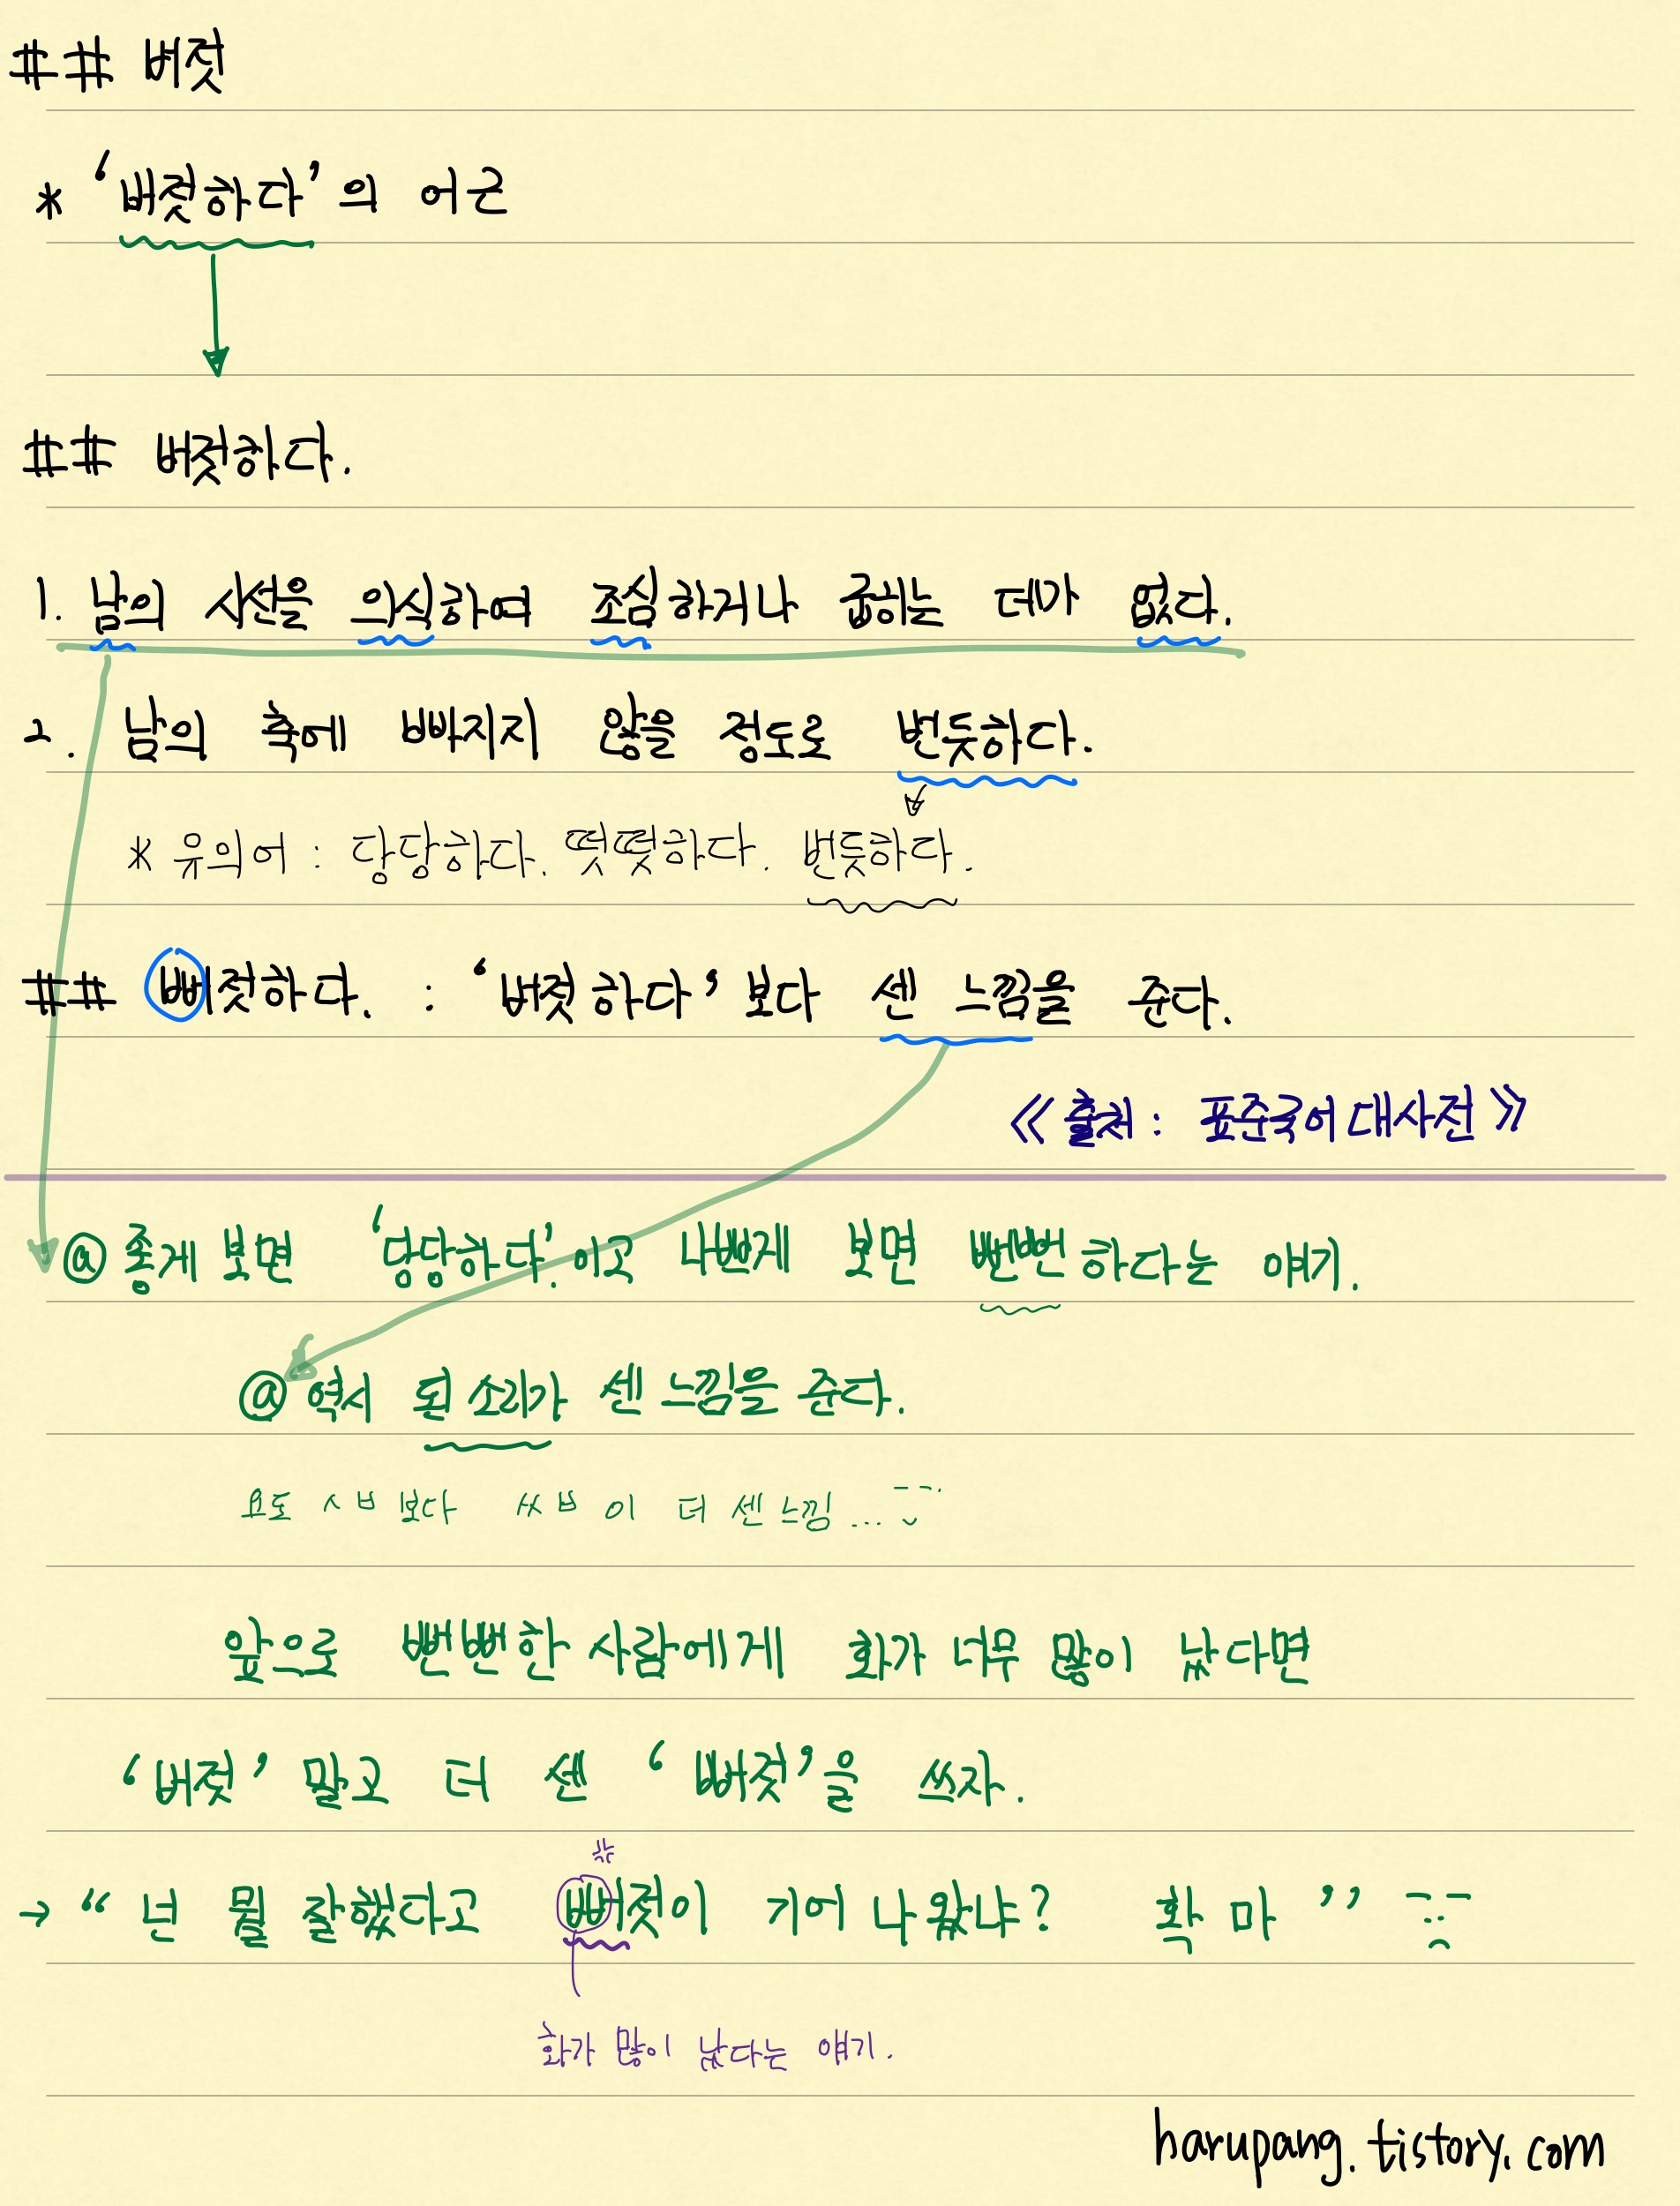 ## 버젓
* '버젓하다'의 어근
## 버젓하다.
1. 남의 시선을 의식하여 조심하거나 굽히는 데가 없다.
2. 남의 축에 빠지지 않을 정도로 번듯하다.
* 유의어 : 당당하다. 떳떳하다. 번듯하다.
## 뻐젓하다. : '버젓하다'보다 센 느낌을 준다.
《출처 : 표준국어대사전》
@ 좋게 보면 '당당하다'.이고 나쁘게 보면 뻔뻔하다는 얘기.
@ 역시 된소리가 센 느낌을 준다.
욕도 ㅅㅂ보다 ㅆㅂ이 더 센 느낌...
앞으로 뻔뻔한 사람에게 화가 너무 많이 났다면
'버젓' 말고 더 센 '뻐젓'을 쓰자.
→ "넌 뭘 잘했다고 뻐젓이 기어 나왔냐? 확 마"
화가 많이 났다는 얘기.
harupang.tistory.com